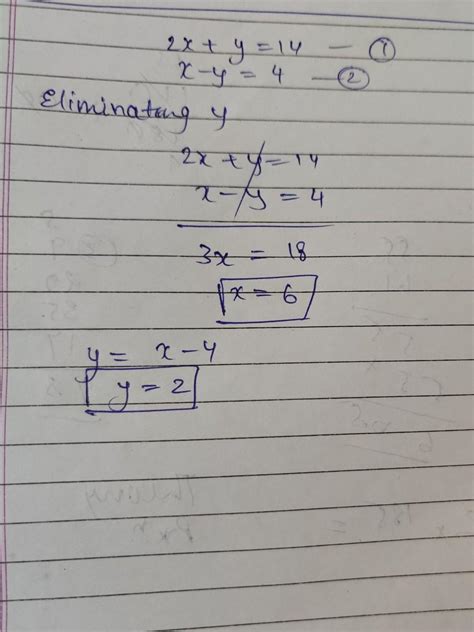 2x + y = 14 — ①
x - y = 4 — ②
Eliminating y
2x + y = 14
x - y = 4
3x = 18
x = 6
y = x - 4
y = 2